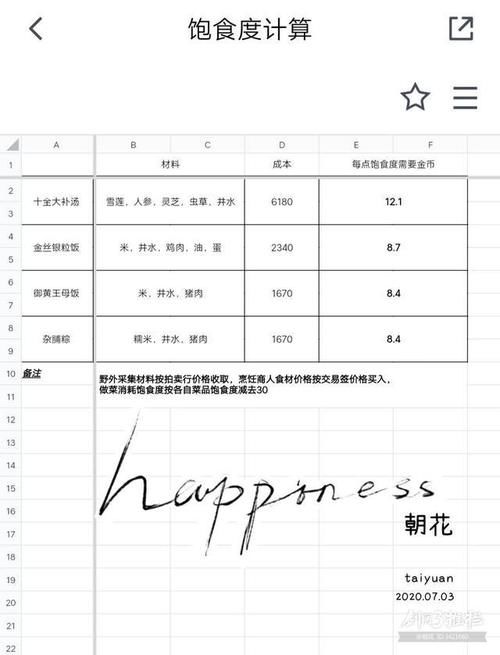 饱食度计算
A B C D E F
1 材料 成本 每点饱食度需要金币
2
十全大补汤 雪莲，人参，灵芝，虫草，井水 6180 12.1
3
4
金丝银粒饭 米，井水，鸡肉，油，蛋 2340 8.7
5
6
御黄王母饭 米，井水，猪肉 1670 8.4
7
8
杂脯粽 糯米，井水，猪肉 1670 8.4
9
10 备注 野外采集材料按拍卖行价格收取，烹饪商人食材价格按交易签价格买入，
11 做菜消耗饱食度按各自菜品饱食度减去30
12
13
14
15 happiness
16
朝花
17
18
19 taiyuan
20 2020.07.03
21
22